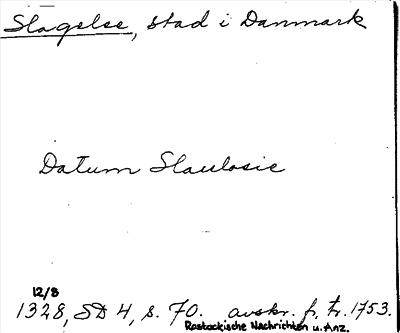 Slagelse, stad i Danmark
Datum Slaulosie
12/8
1328, SD 4, s. 70. avskr. fr. tr. 1753.
Rostockische Nachrichten u. Anz.